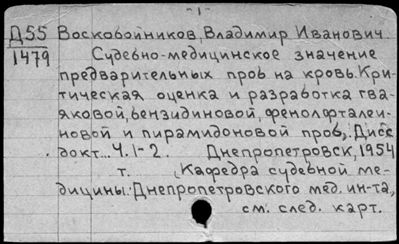 -1-
Д55 Воскобойников, Владимир Иванович
1479 Судебно-медицинское значение
предварительных проб на кровь. Кри-
тическая оценка и разработка гва-
яковой, бензидиновой, фенолфталеи-
новой и пирамидоновой проб. Дисс.
докт... Ч. 1-2. Днепропетровск, 1954
т. (Кафедра судебной ме-
дицины Днепропетровского мед. ин-та,
см. след. карт.